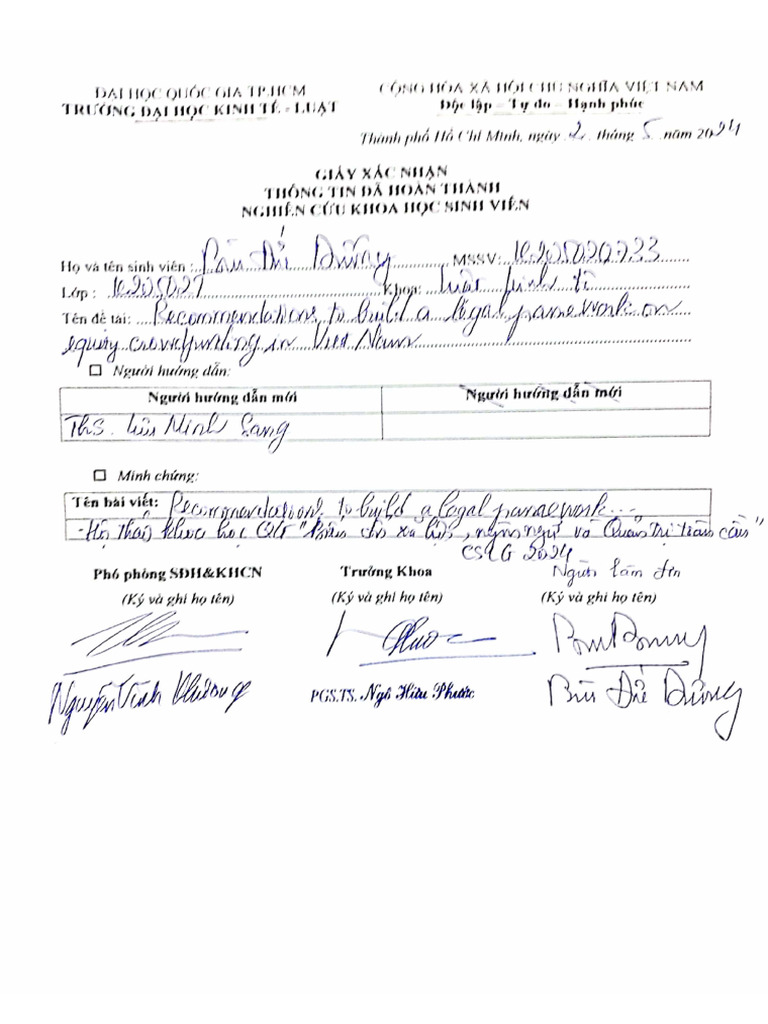 ĐẠI HỌC QUỐC GIA TP.HCM
TRƯỜNG ĐẠI HỌC KINH TẾ - LUẬT
CỘNG HÒA XÃ HỘI CHỦ NGHĨA VIỆT NAM
Độc lập – Tự do – Hạnh phúc
Thành phố Hồ Chí Minh, ngày 2 tháng 5 năm 2024
GIẤY XÁC NHẬN
THÔNG TIN ĐÃ HOÀN THÀNH
NGHIÊN CỨU KHOA HỌC SINH VIÊN
Họ và tên sinh viên : Bùi Đỉ Dường MSSV: K205020233
Lớp : K205027 Khoa: Luật Kinh tế
Tên đề tài: Recommendations to build a legal framework on
equity crowdfunding in Viet Nam
Người hướng dẫn:
Người hướng dẫn mới Người hướng dẫn mới
ThS. Lưu Minh Sang
Minh chứng:
Tên bài viết: Recommendations to build a legal framework...
- Hội thảo khoa học QT "Biến đổi xã hội, ngôn ngữ và Quản trị toàn cầu"
CSLG 2024
Phó phòng SĐH&KHCN Trưởng Khoa Người làm đơn
(Ký và ghi họ tên) (Ký và ghi họ tên) (Ký và ghi họ tên)
Nguyễn Vĩnh Khương PGS.TS. Ngô Hữu Phước Bùi Đỉ Dường